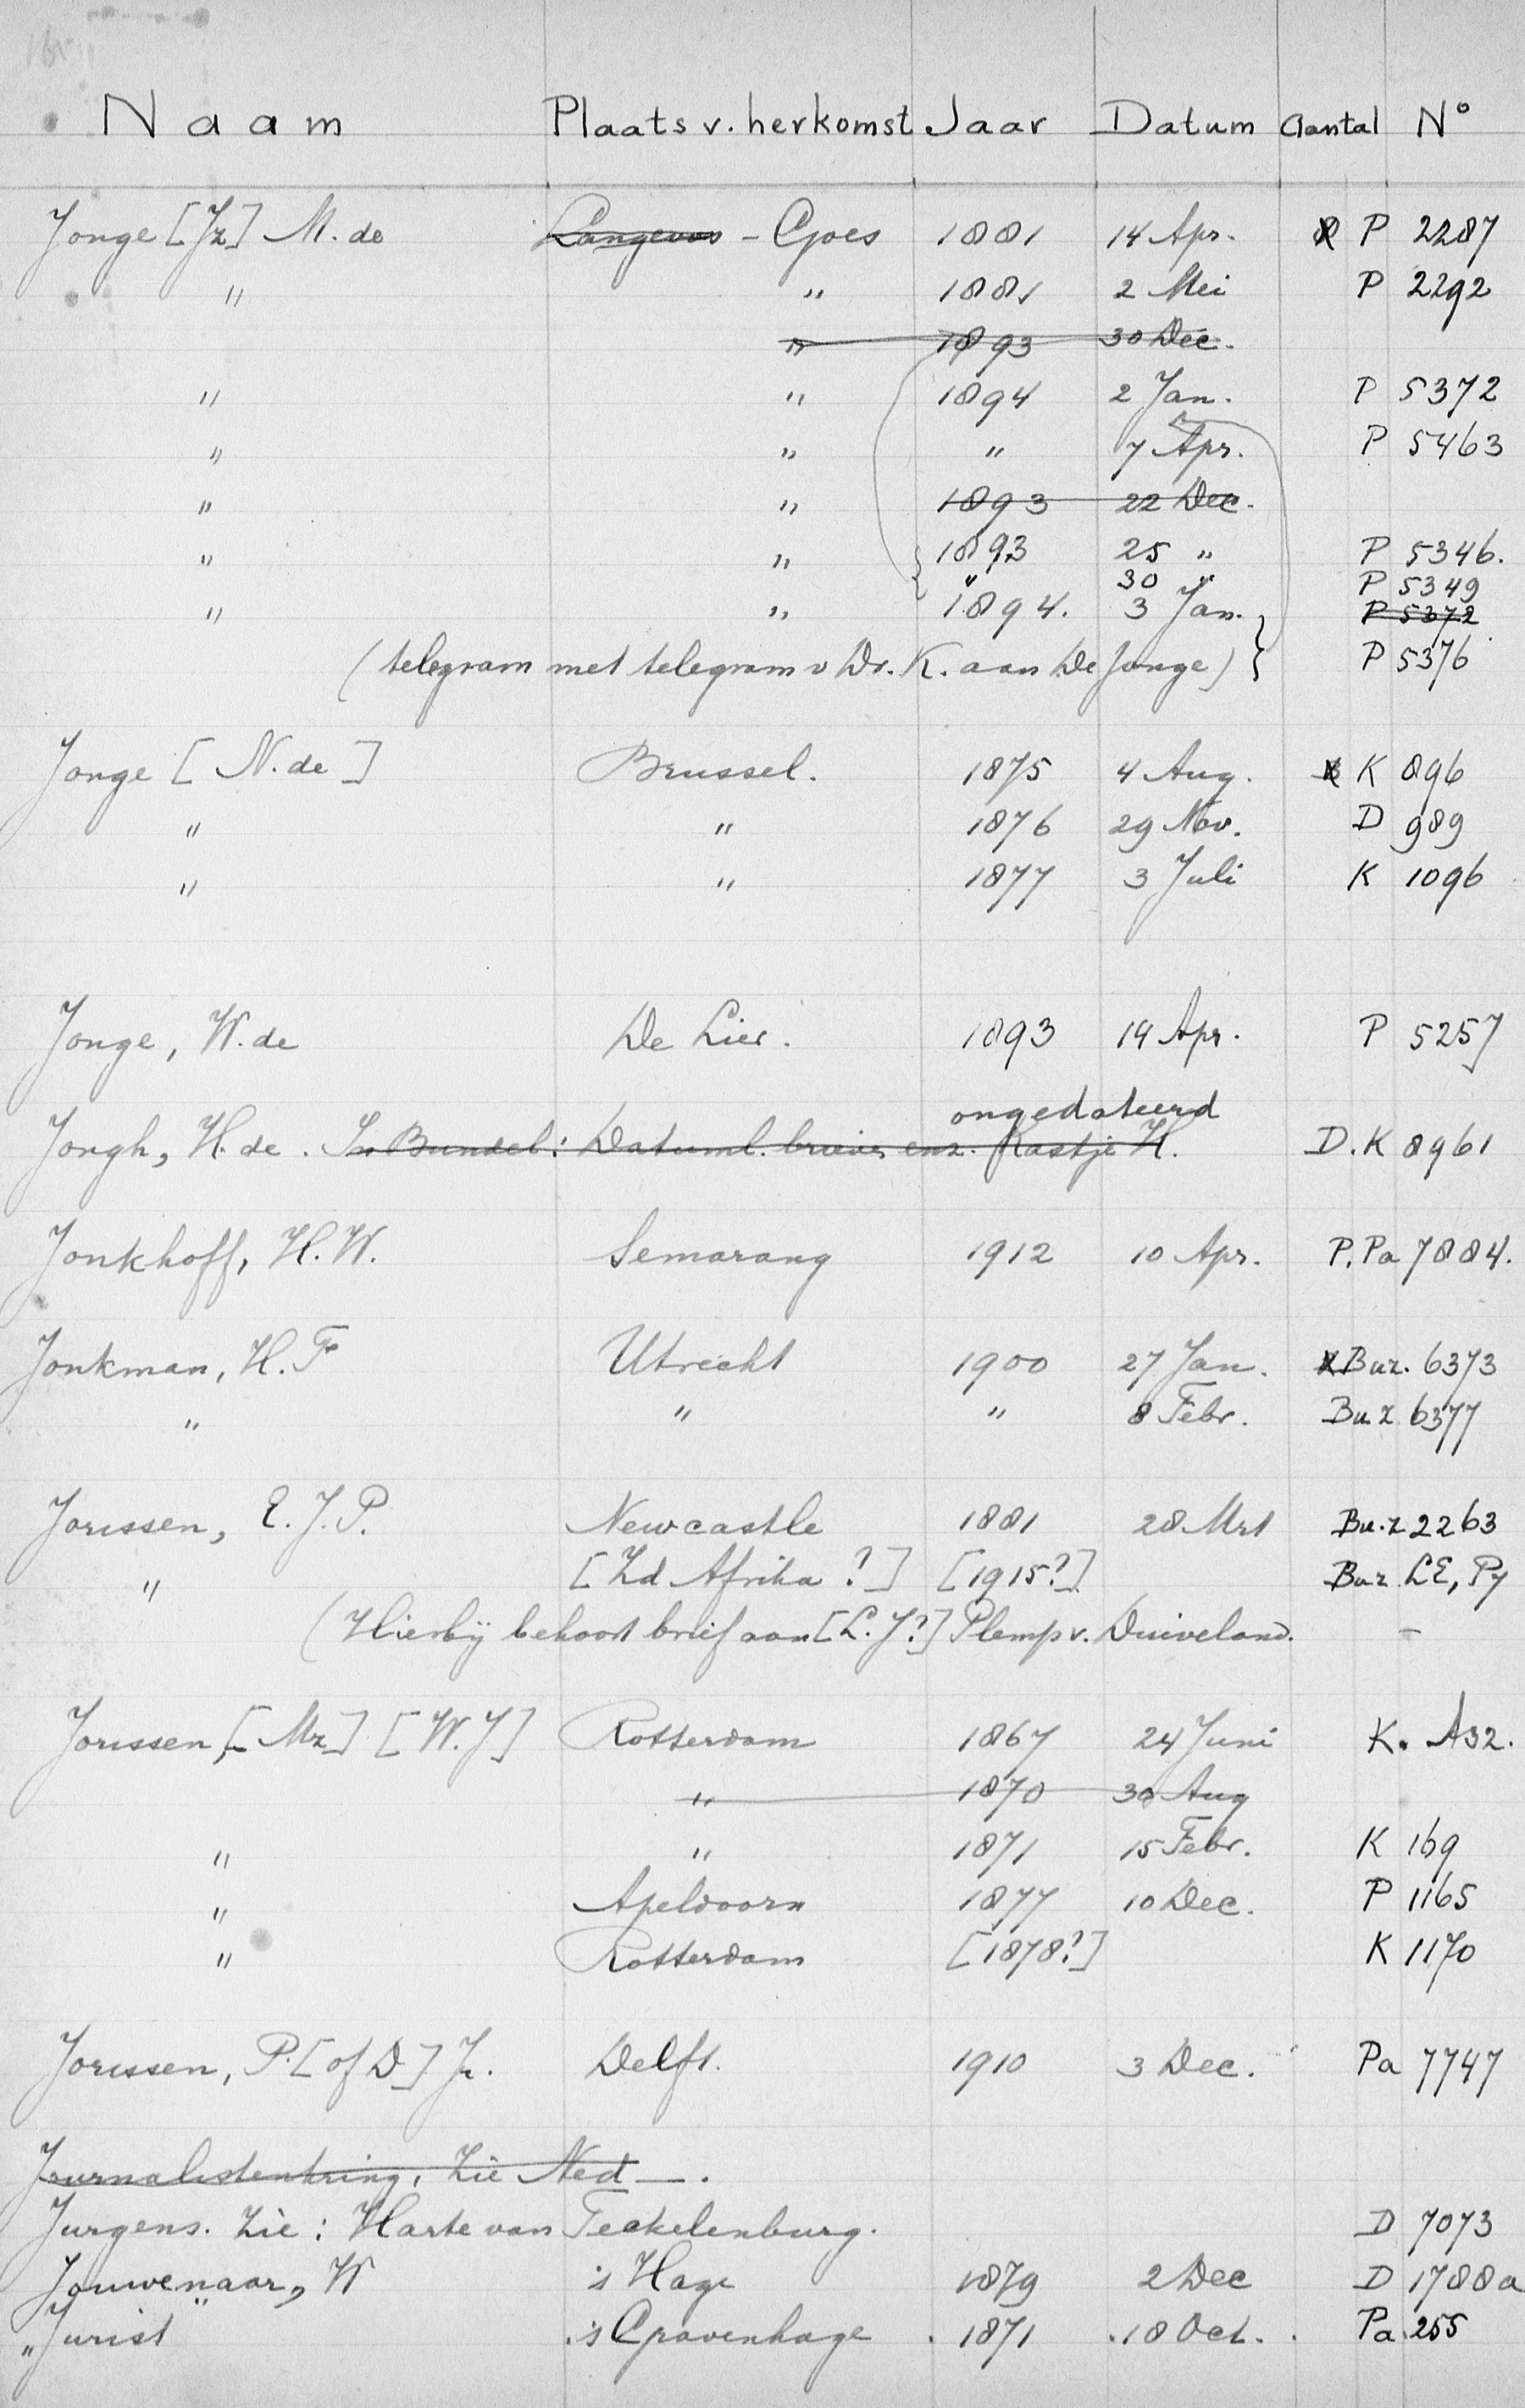 Naam Plaats v. herkomst Jaar Datum Aantal N°
Jonge [Jz] M. de Langevos - Goes 1881 14 Apr. P 2287
" " 1881 2 Mei P 2292
" 1893 30 Dec.
" " 1894 2 Jan. P 5372
" " " 7 Apr. P 5463
" " 1893 22 Dec.
" " 1893 25 " P 5346.
" 30 " P 5349
" " 1894. 3 Jan. P 5372
(telegram met telegram v Dr. K. aan De Jonge) P 5376
Jonge [N. de] Brussel. 1875 4 Aug. K 896
" " 1876 29 Nov. D 989
" " 1877 3 Juli K 1096
Jonge, W. de De Lier. 1893 14 Apr. P 5257
ongedateerd
Jongh, H. de. In Bundel: Datuml. brieven enz. Kastje H. D.K 8961
Jonkhoff, H. W. Semarang 1912 10 Apr. P. Pa 7884.
Jonkman, H. F Utrecht 1900 27 Jan. Buz. 6373
" " " 8 Febr. Buz 6377
Jorissen, E. J. P. Newcastle 1881 28 Mrt Bu.z 2263
" [Zd Afrika ?] [1915?] Buz. LE, Py
(Hierbij behoort brief aan [L. J?] Plemp v. Duiveland. -
Jorissen, [Mz] [W. J] Rotterdam 1867 24 Juni K. A32.
" 1870 30 Aug
" " 1871 15 Febr. K 169
" Apeldoorn 1877 10 Dec. P 1165
" Rotterdam [1878?] K 1170
Jorissen, P. [of D] Jr. Delft. 1910 3 Dec. Pa 7747
Journalistenkring, Zie Ned —.
Jurgens. Zie: Harte van Teckelenburg. D 7073
Jouwenaar, W 's Hage 1879 2 Dec D 1788a
"Jurist" 's Gravenhage 1871 18 Oct. Pa 255